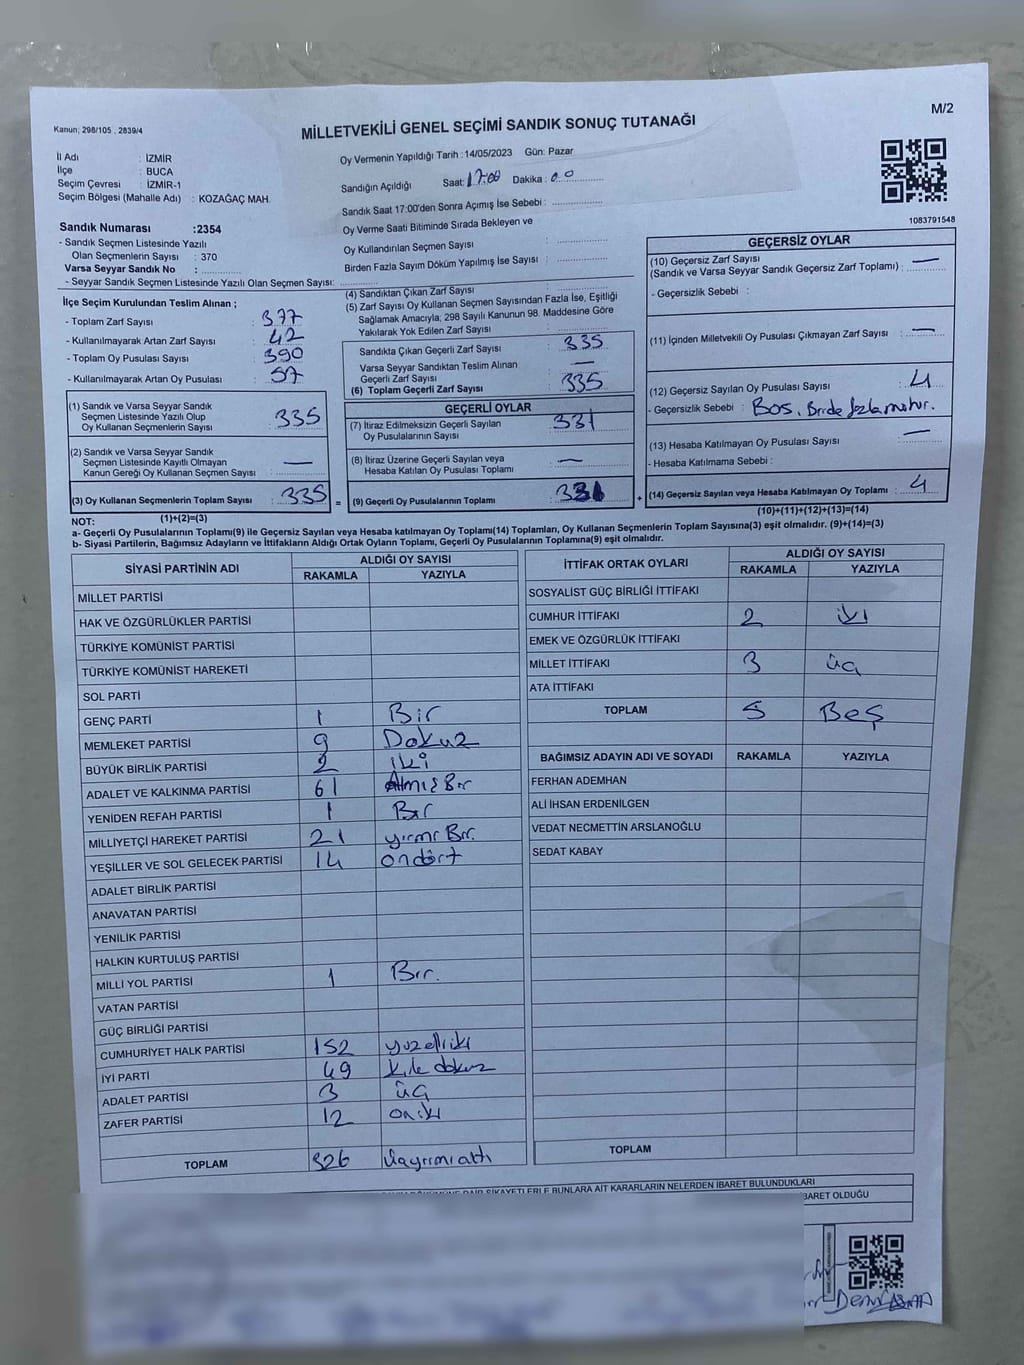 M/2
Kanun; 298/105 , 2839/4
MİLLETVEKİLİ GENEL SEÇİMİ SANDIK SONUÇ TUTANAĞI
İl Adı : İZMİR
İlçe : BUCA
Seçim Çevresi : İZMİR-1
Seçim Bölgesi (Mahalle Adı) : KOZAĞAÇ MAH.
Oy Vermenin Yapıldığı Tarih : 14/05/2023 Gün: Pazar
Sandığın Açıldığı Saat: 17:00 Dakika : 00
Sandık Saat 17:00'den Sonra Açımış İse Sebebi :
Oy Verme Saati Bitiminde Sırada Bekleyen ve
Oy Kullandırılan Seçmen Sayısı :
Birden Fazla Sayım Döküm Yapılmış İse Sayısı :
1083791548
Sandık Numarası :2354
- Sandık Seçmen Listesinde Yazılı
Olan Seçmenlerin Sayısı : 370
Varsa Seyyar Sandık No :
- Seyyar Sandık Seçmen Listesinde Yazılı Olan Seçmen Sayısı:
İlçe Seçim Kurulundan Teslim Alınan ;
- Toplam Zarf Sayısı : 377
- Kullanılmayarak Artan Zarf Sayısı : 42
- Toplam Oy Pusulası Sayısı : 390
- Kullanılmayarak Artan Oy Pusulası : 57
(1) Sandık ve Varsa Seyyar Sandık
Seçmen Listesinde Yazılı Olup
Oy Kullanan Seçmenlerin Sayısı : 335
(2) Sandık ve Varsa Seyyar Sandık
Seçmen Listesinde Kayıtlı Olmayan
Kanun Gereği Oy Kullanan Seçmen Sayısı : —
(3) Oy Kullanan Seçmenlerin Toplam Sayısı : 335
(1)+(2)=(3)
(4) Sandıktan Çıkan Zarf Sayısı :
(5) Zarf Sayısı Oy Kullanan Seçmen Sayısından Fazla İse, Eşitliği
Sağlamak Amacıyla; 298 Sayılı Kanunun 98. Maddesine Göre
Yakılarak Yok Edilen Zarf Sayısı :
Sandıkta Çıkan Geçerli Zarf Sayısı : 335
Varsa Seyyar Sandıktan Teslim Alınan
Geçerli Zarf Sayısı : —
(6) Toplam Geçerli Zarf Sayısı : 335
GEÇERLİ OYLAR
(7) İtiraz Edilmeksizin Geçerli Sayılan
Oy Pusulalarının Sayısı : 331
(8) İtiraz Üzerine Geçerli Sayılan veya
Hesaba Katılan Oy Pusulası Toplamı : —
= (9) Geçerli Oy Pusulalarının Toplamı : 331
GEÇERSİZ OYLAR
(10) Geçersiz Zarf Sayısı
(Sandık ve Varsa Seyyar Sandık Geçersiz Zarf Toplamı) : —
- Geçersizlik Sebebi :
(11) İçinden Milletvekili Oy Pusulası Çıkmayan Zarf Sayısı : —
(12) Geçersiz Sayılan Oy Pusulası Sayısı : 4
- Geçersizlik Sebebi : Boş,
(13) Hesaba Katılmayan Oy Pusulası Sayısı : —
- Hesaba Katılmama Sebebi :
+ (14) Geçersiz Sayılan veya Hesaba Katılmayan Oy Toplamı : 4
(10)+(11)+(12)+(13)=(14)
NOT:
a- Geçerli Oy Pusulalarının Toplamı(9) ile Geçersiz Sayılan veya Hesaba katılmayan Oy Toplamı(14) Toplamları, Oy Kullanan Seçmenlerin Toplam Sayısına(3) eşit olmalıdır. (9)+(14)=(3)
b- Siyasi Partilerin, Bağımsız Adayların ve İttifakların Aldığı Ortak Oyların Toplamı, Geçerli Oy Pusulalarının Toplamına(9) eşit olmalıdır.
SİYASİ PARTİNİN ADI ALDIĞI OY SAYISI
RAKAMLA YAZIYLA
MİLLET PARTİSİ
HAK VE ÖZGÜRLÜKLER PARTİSİ
TÜRKİYE KOMÜNİST PARTİSİ
TÜRKİYE KOMÜNİST HAREKETİ
SOL PARTİ
GENÇ PARTİ 1 Bir
MEMLEKET PARTİSİ 9 Dokuz
BÜYÜK BİRLİK PARTİSİ 2 iki
ADALET VE KALKINMA PARTİSİ 61 Atmış Bir
YENİDEN REFAH PARTİSİ 1 Bir
MİLLİYETÇİ HAREKET PARTİSİ 21 yirmi Bir.
YEŞİLLER VE SOL GELECEK PARTİSİ 14 ondört
ADALET BİRLİK PARTİSİ
ANAVATAN PARTİSİ
YENİLİK PARTİSİ
HALKIN KURTULUŞ PARTİSİ
MİLLİ YOL PARTİSİ 1 Bir.
VATAN PARTİSİ
GÜÇ BİRLİĞİ PARTİSİ
CUMHURİYET HALK PARTİSİ 152 yüzelliiki
İYİ PARTİ 49 kırk dokuz
ADALET PARTİSİ 3 üç
ZAFER PARTİSİ 12 oniki
TOPLAM 326 üçyirmialtı
İTTİFAK ORTAK OYLARI ALDIĞI OY SAYISI
RAKAMLA YAZIYLA
SOSYALİST GÜÇ BİRLİĞİ İTTİFAKI
CUMHUR İTTİFAKI 2 iki
EMEK VE ÖZGÜRLÜK İTTİFAKI
MİLLET İTTİFAKI 3 üç
ATA İTTİFAKI
TOPLAM 5 Beş
BAĞIMSIZ ADAYIN ADI VE SOYADI RAKAMLA YAZIYLA
FERHAN ADEMHAN
ALİ İHSAN ERDENİLGEN
VEDAT NECMETTİN ARSLANOĞLU
SEDAT KABAY
TOPLAM
ŞİKAYETLERLE BUNLARA AİT KARARLARIN NELERDEN İBARET BULUNDUKLARI
İBARET OLDUĞU